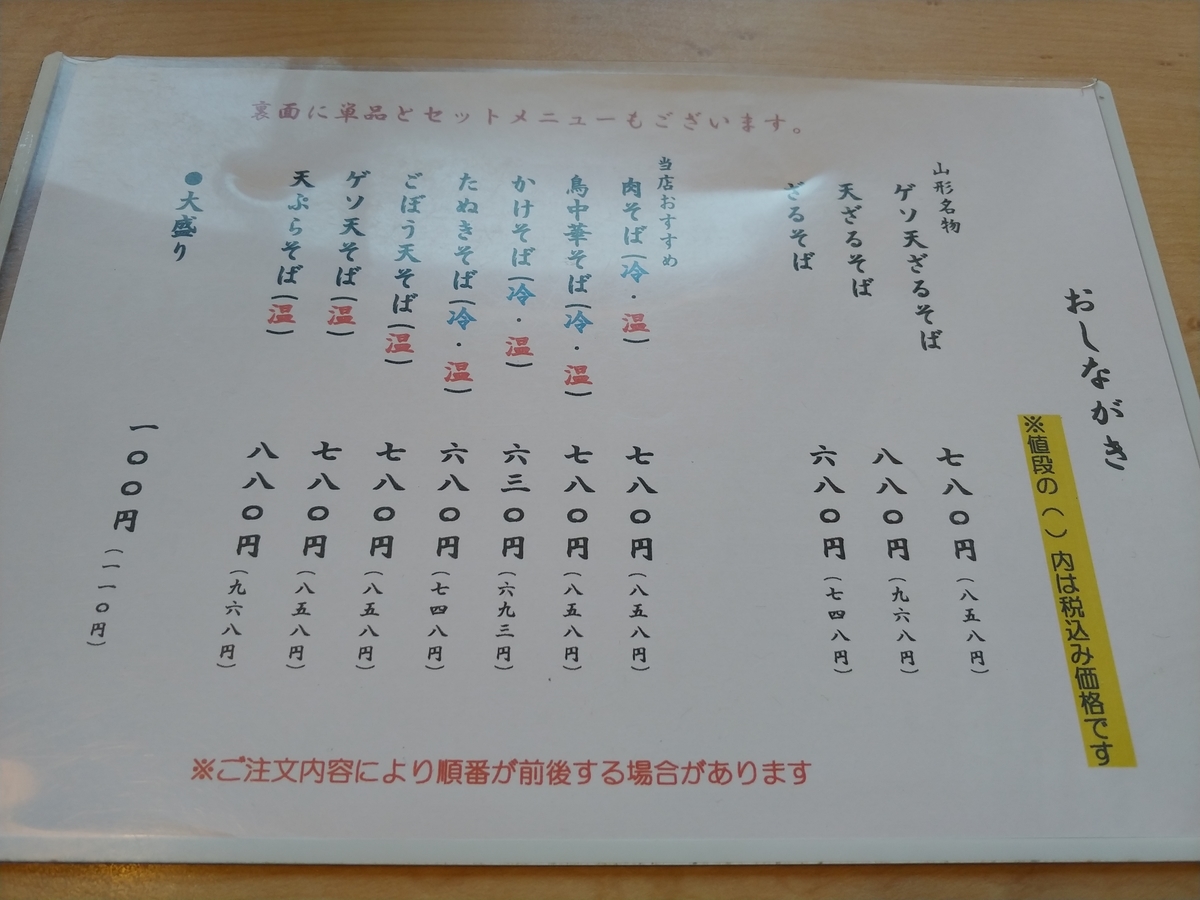 裏面に単品とセットメニューもございます。
おしながき
※値段の（）内は税込み価格です
山形名物
ゲソ天ざるそば 七八〇円（八五八円）
天ざるそば 八八〇円（九六八円）
ざるそば 六八〇円（七四八円）
当店おすすめ
肉そば（冷・温） 七八〇円（八五八円）
鳥中華そば（冷・温） 七八〇円（八五八円）
かけそば（冷・温） 六三〇円（六九三円）
たぬきそば（冷・温） 六八〇円（七四八円）
ごぼう天そば（温） 七八〇円（八五八円）
ゲソ天そば（温） 七八〇円（八五八円）
天ぷらそば（温） 八八〇円（九六八円）
●大盛り 一〇〇円（一一〇円）
※ご注文内容により順番が前後する場合があります